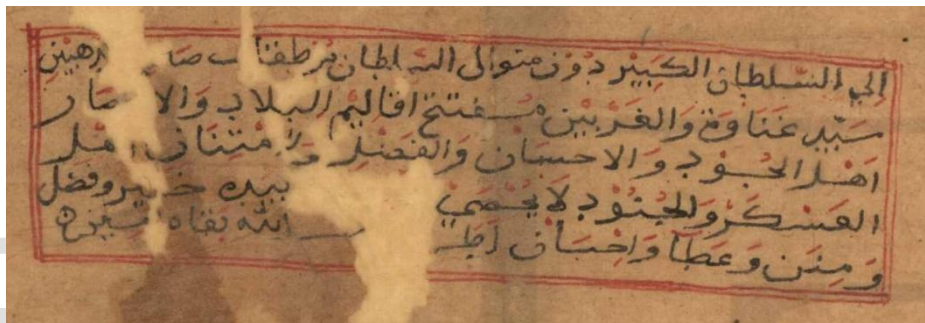 إلي السلطان الكبير دون منوال السلطان
سيد غناوة والغربين مفتح اقاليم البلاد والا صار
اهل الجود والاحسان والفضل والامتنان اهل
العسكر والجنود لا يحصي بيده خير وفضل
ومنن وعطا واحسان اطا الله بقاه